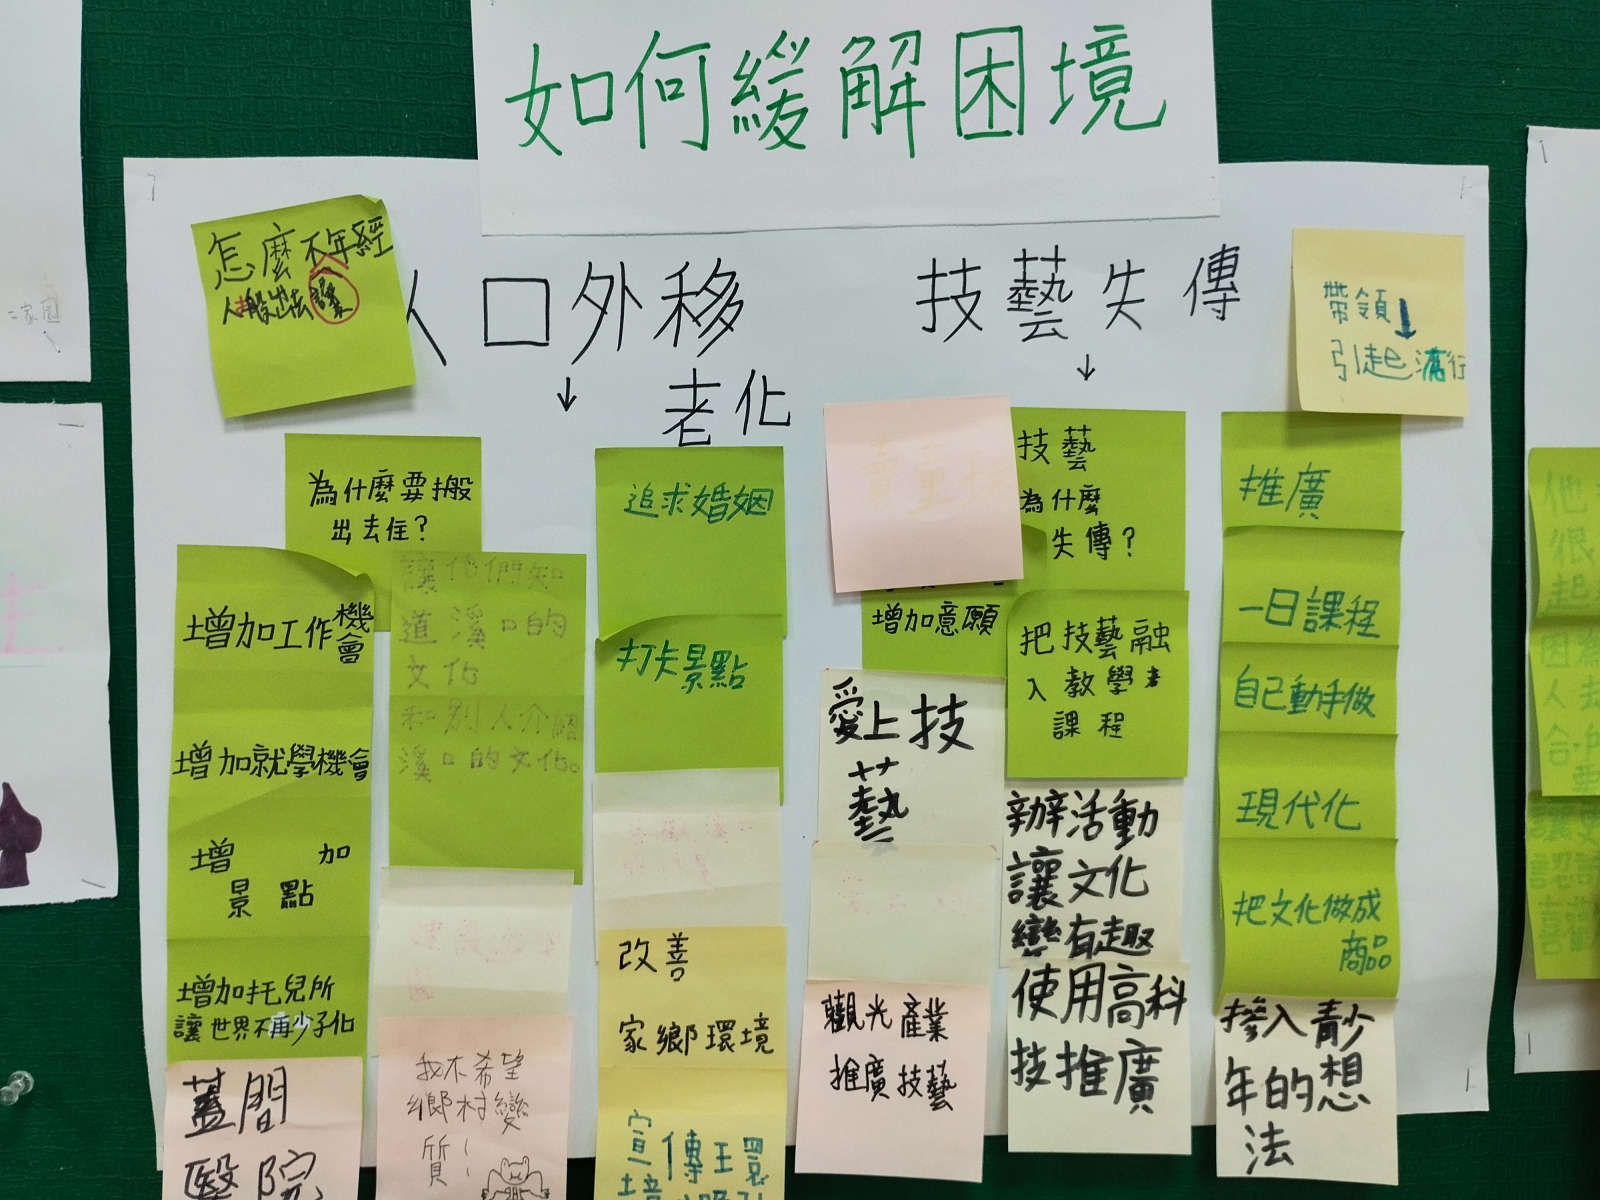 如何緩解困境
怎麼
人口外移
老化
↓
為什麼要搬
出去住?
增加工作機會
增加就學機會
增加
景點
增加托兒所
讓世界不再少子化
蓋間
醫院
讓他們知
道溪口的
文化
和別人介紹
溪口的文化。
我不希望
鄉村變
質!
追求婚姻
打卡景點
改善
家鄉環境
宣傳
技藝失傳
↓
技藝
為什麼
失傳?
增加意願
愛上技
藝
觀光產業
推廣技藝
把技藝融
入教學
課程
辦活動
讓文化
變有趣
使用高科
技推廣
帶領↓
引起
推廣
一日課程
自己動手做
現代化
把文化做成
商品
摻入青少
年的想
法